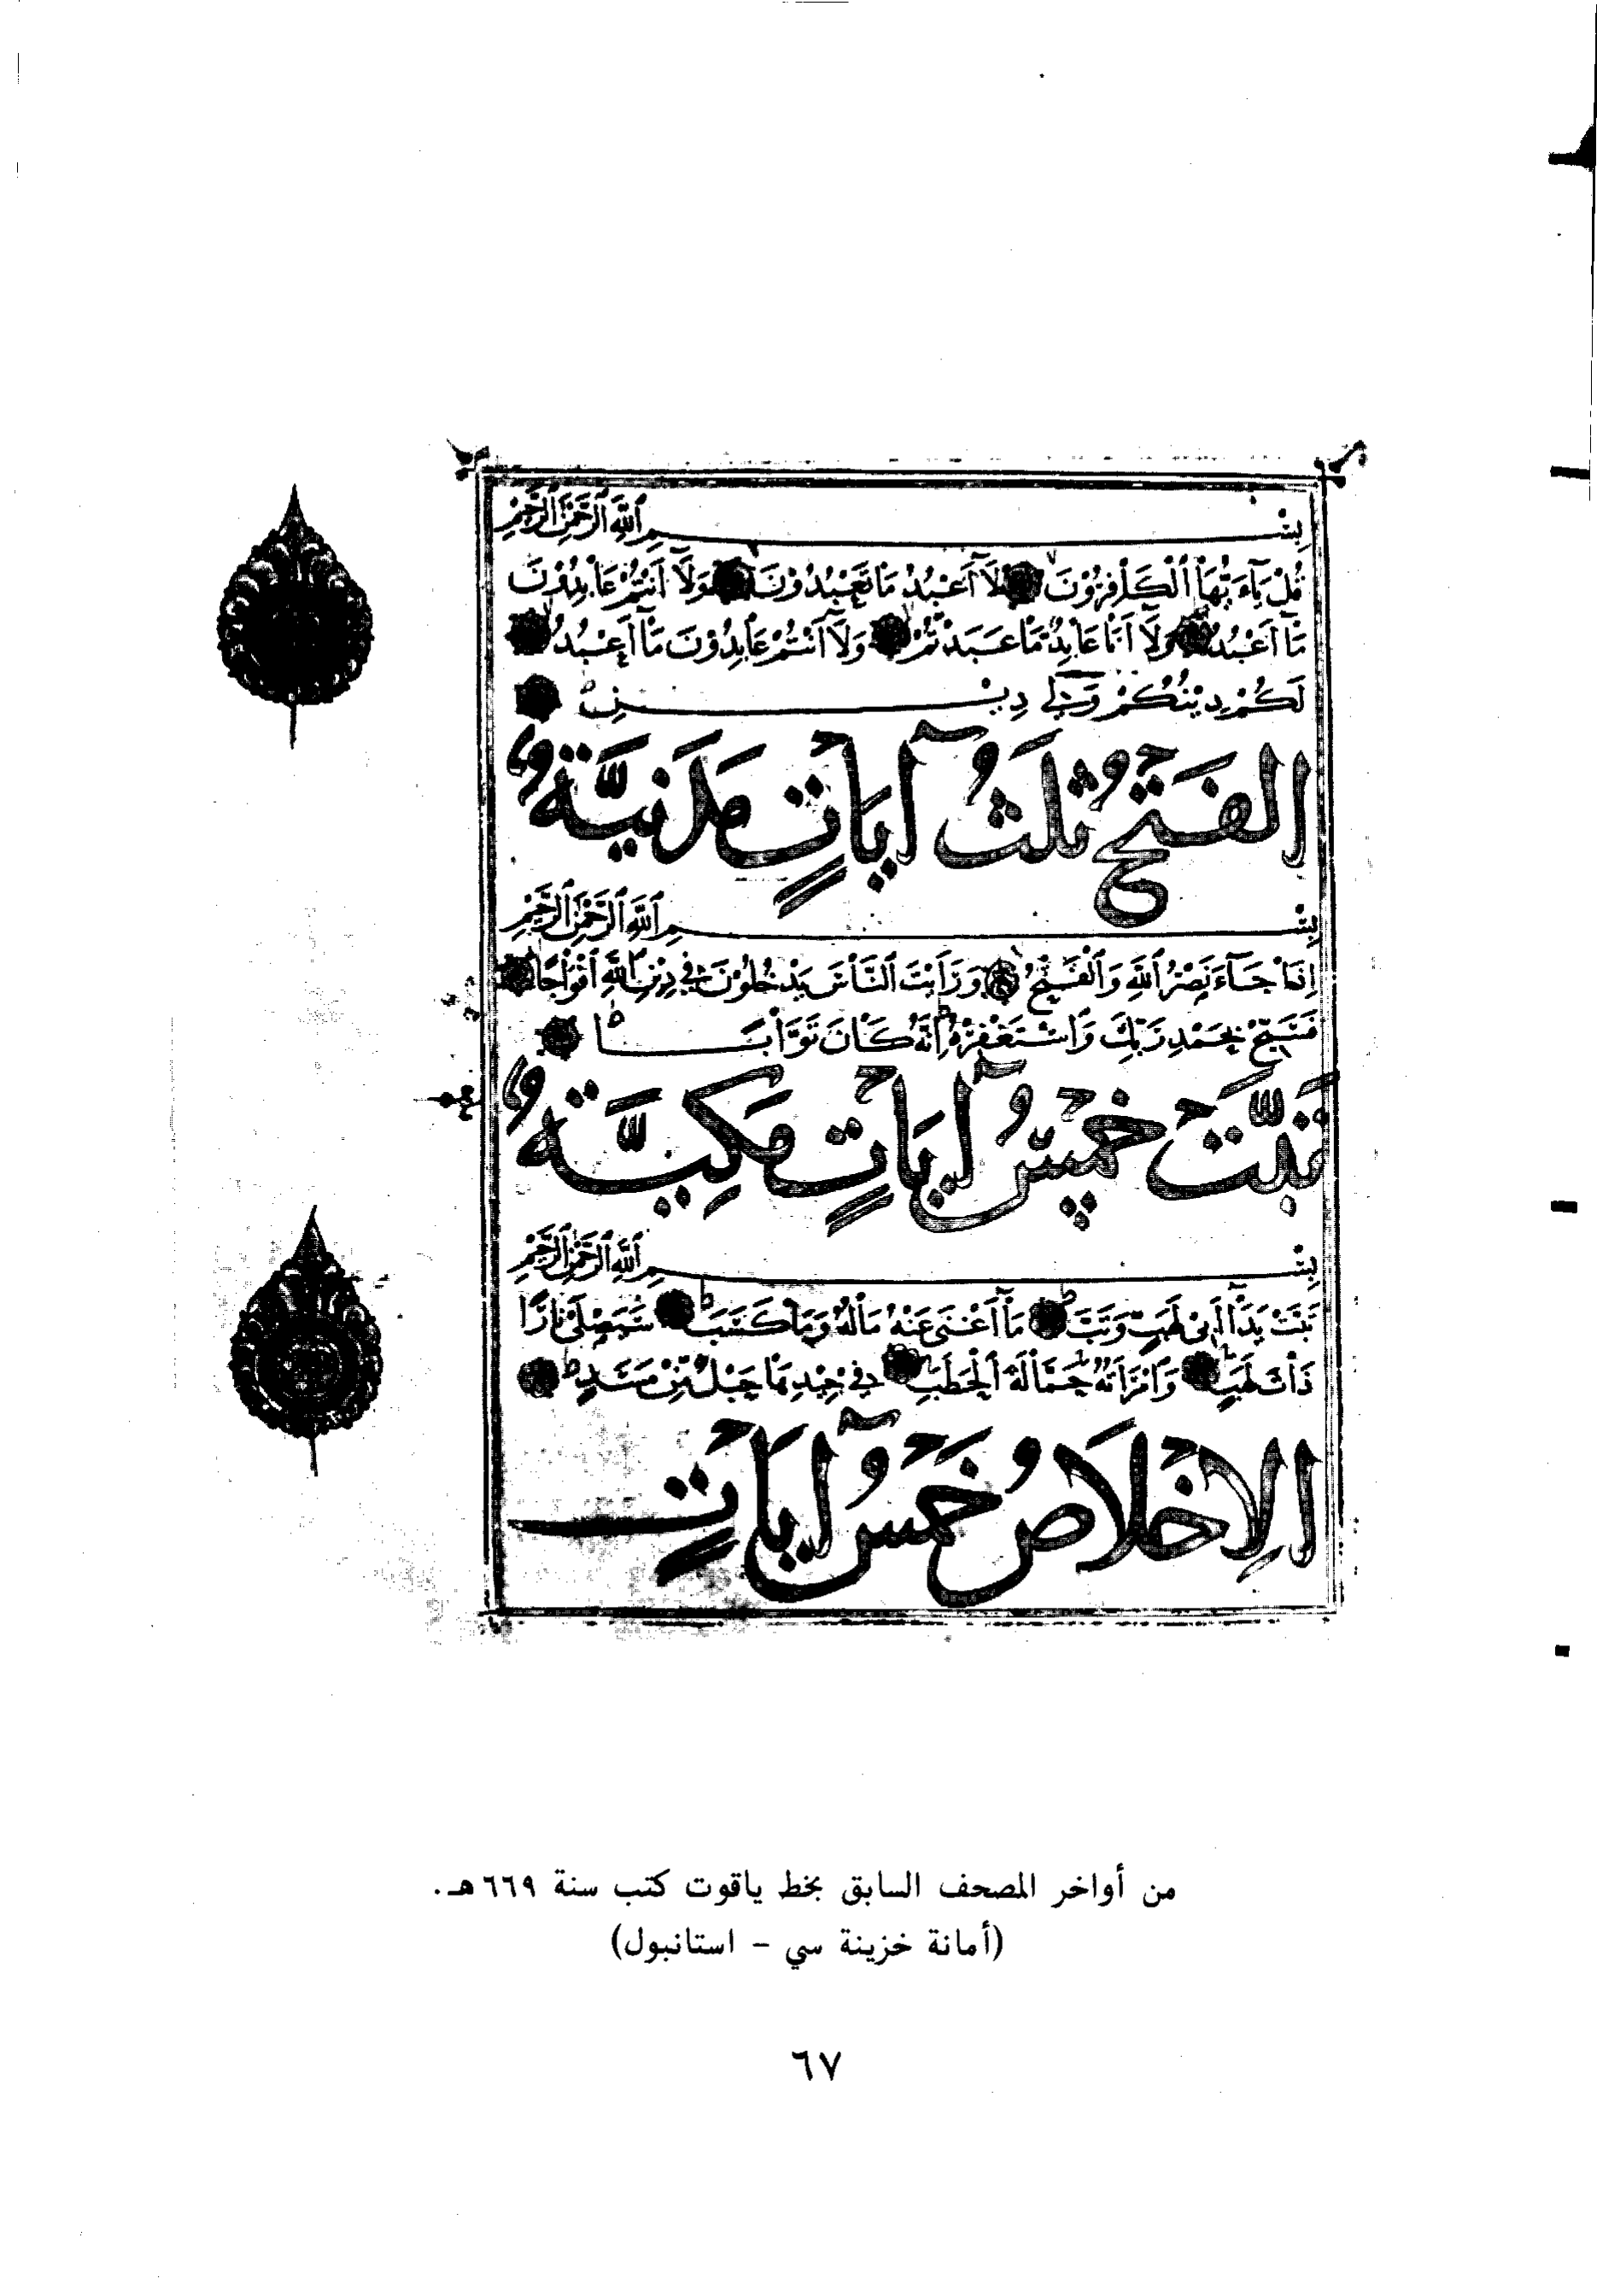 بِسْمِ اللَّهِ الرَّحْمَنِ الرَّحِيمِ
قُلْ يَآءَيُّهَا الْكَافِرُوْنَ لَآ اَعْبُدُ مَا تَعْبُدُوْنَ وَلَآ اَنْتُمْ عَابِدُوْنَ
مَآ اَعْبُدُ وَلَآ اَنَا عَابِدٌ مَا عَبَدْتُمْ وَلَآ اَنْتُمْ عَابِدُوْنَ مَآ اَعْبُدُ
لَكُمْ دِيْنُكُمْ وَلِيَ دِيْنِ
الفَتْحِ ثَلَثُ آيَاتٍ مَدَنِيَّةٌ
بِسْمِ اللَّهِ الرَّحْمَنِ الرَّحِيمِ
اِذَا جَآءَ نَصْرُ اللَّهِ وَالْفَتْحُ وَرَاَيْتَ النَّاسَ يَدْخُلُوْنَ فِي دِيْنِ اللَّهِ اَفْوَاجًا
فَسَبِّحْ بِحَمْدِ رَبِّكَ وَاسْتَغْفِرْهُ اِنَّهُ كَانَ تَوَّابًا
تَبَّتْ خَمْسُ آيَاتٍ مَكِيَّةٌ
بِسْمِ اللَّهِ الرَّحْمَنِ الرَّحِيمِ
تَبَّتْ يَدَآ اَبِي لَهَبٍ وَتَبَّ مَآ اَغْنَى عَنْهُ مَالُهُ وَمَا كَسَبَ سَيَصْلَى نَارًا
ذَاتَ لَهَبٍ وَامْرَاَتُهُ حَمَّالَةُ الْحَطَبِ فِي جِيْدِهَا حَبْلٌ مِّنْ مَسَدٍ
الاِخْلَاصُ خَمْسُ آيَاتٍ
من أواخر المصحف السابق بخط ياقوت كتب سنة ٦٦٩هـ.
(أمانة خزينة سي - استانبول)
٦٧